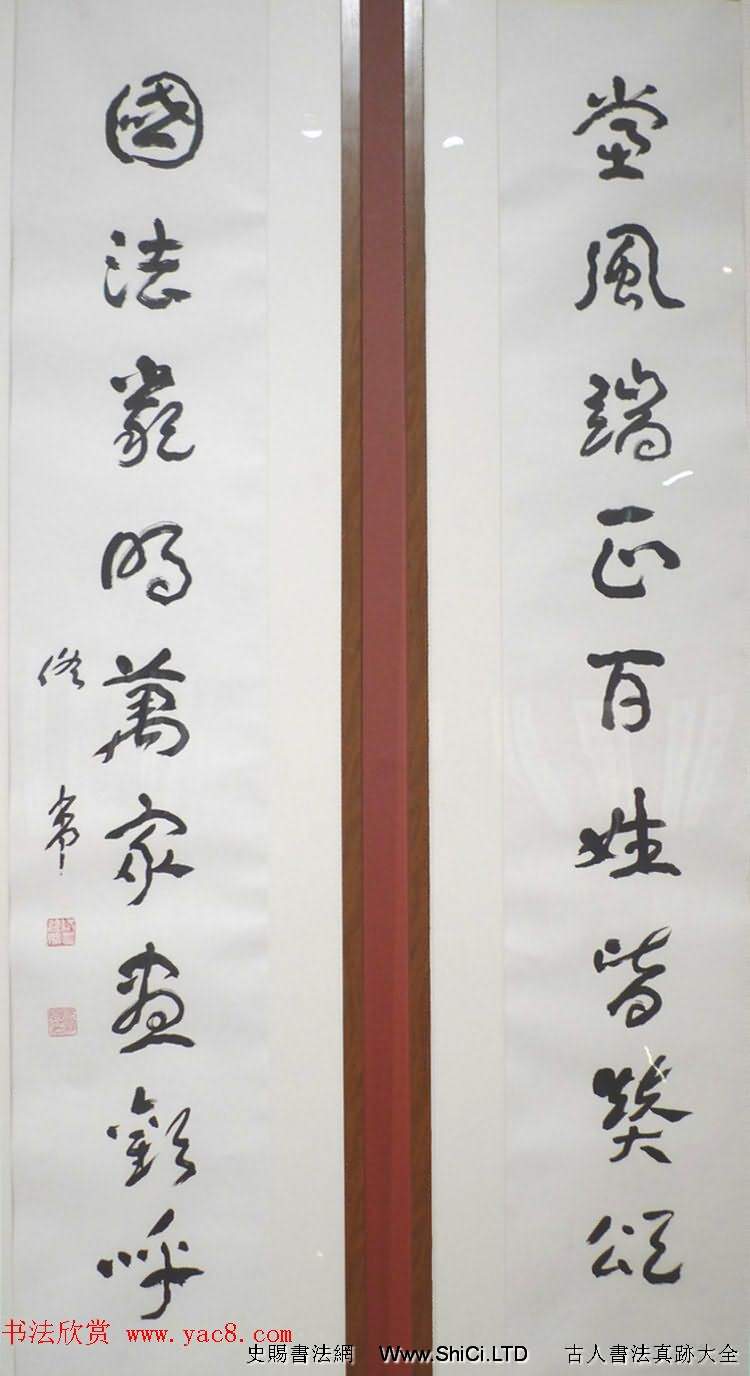 黨風端正百姓皆贊頌
國法嚴明萬家盡歡呼
佟韋
书法欣赏 www.yac8.com
史賜書法網 Www.ShiCi.LTD 古人書法真跡大全